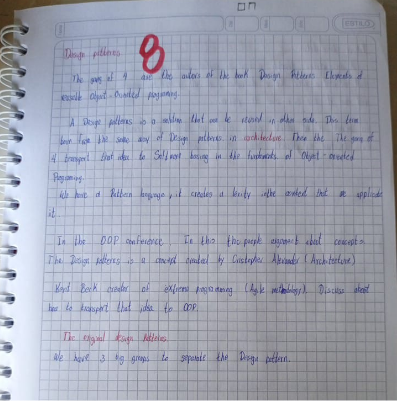 Design patterns
8
The gang of 4 are the autors of the book Design Patterns Elements of
reusable Object-Oriented programing.
A Design patterns is a solution that can be reused in other side. This term
been from the same way of Design patterns in architecture. Then the The gang of
4 transport that idea to Software basing in the fundaments of Object-oriented
Programing.
We have a Pattern language, it creates a clarity in the context that we applicate
it.
In the OOP conference, In this the people about concepts
The Design patterns is a concept created by Cristopher Alexander (Architecture)
Kent Beck creator of extreme programming (Agile methology). Discuss about
how to transport that idea to OOP.
The original design patterns
We have 3 big groups to separate the Design pattern.